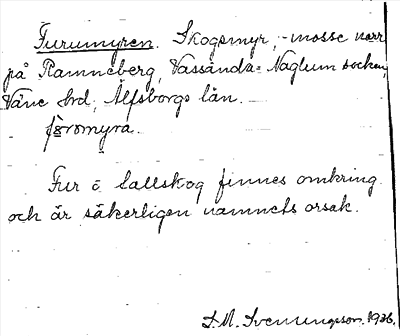 Furumyren. Skogsmyr, -mosse norr
på Ramneberg, Vassända-Naglum socken,
Väne hrd, Älfsborgs län.
fʉromyra.
Fur o tallskog finnes omkring
och är säkerligen namnets orsak.
S.M. Svenungsson. 1936.